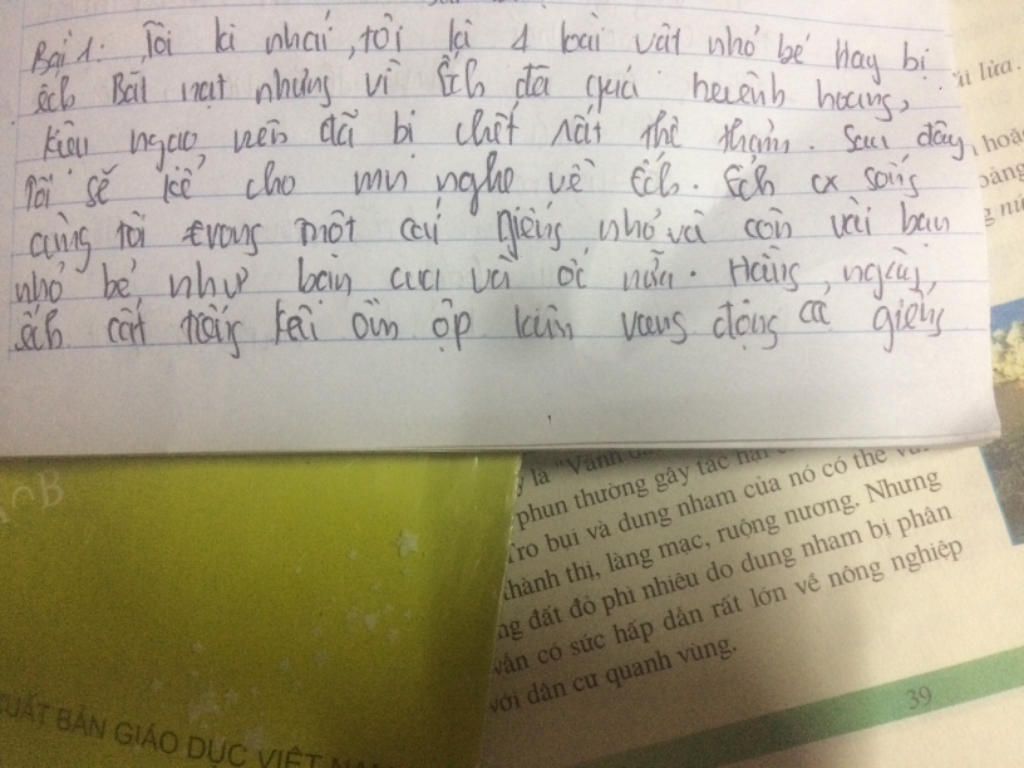 Bài 1: Tôi là nhái, tôi là 1 loài vật nhỏ bé Hay bị
ếch Bắt nạt nhưng vì Ếch đã quá huênh hoang,
kiêu ngạo nên đã bị chết rất thê thảm. Sau đây
Tôi sẽ kể cho mn nghe về Ếch. Ếch cx sống
cùng tôi trong một cái giếng nhỏ và còn vài bạn
nhỏ bé như bạn cua và ốc nữa. Hằng ngày,
ếch cất tiếng kêu ồm ộp vang động cả giếng
ít lửa.
hoặc
y là "Vành
phun thường gây tác hại
Tro bụi và dung nham của nó có thể
thành thị, làng mạc, ruộng nương. Nhưng
ng đất đỏ phì nhiêu do dung nham bị phân
vẫn có sức hấp dẫn rất lớn về nông nghiệp
với dân cư quanh vùng.
39
XUẤT BẢN GIÁO DỤC VIỆT NAM